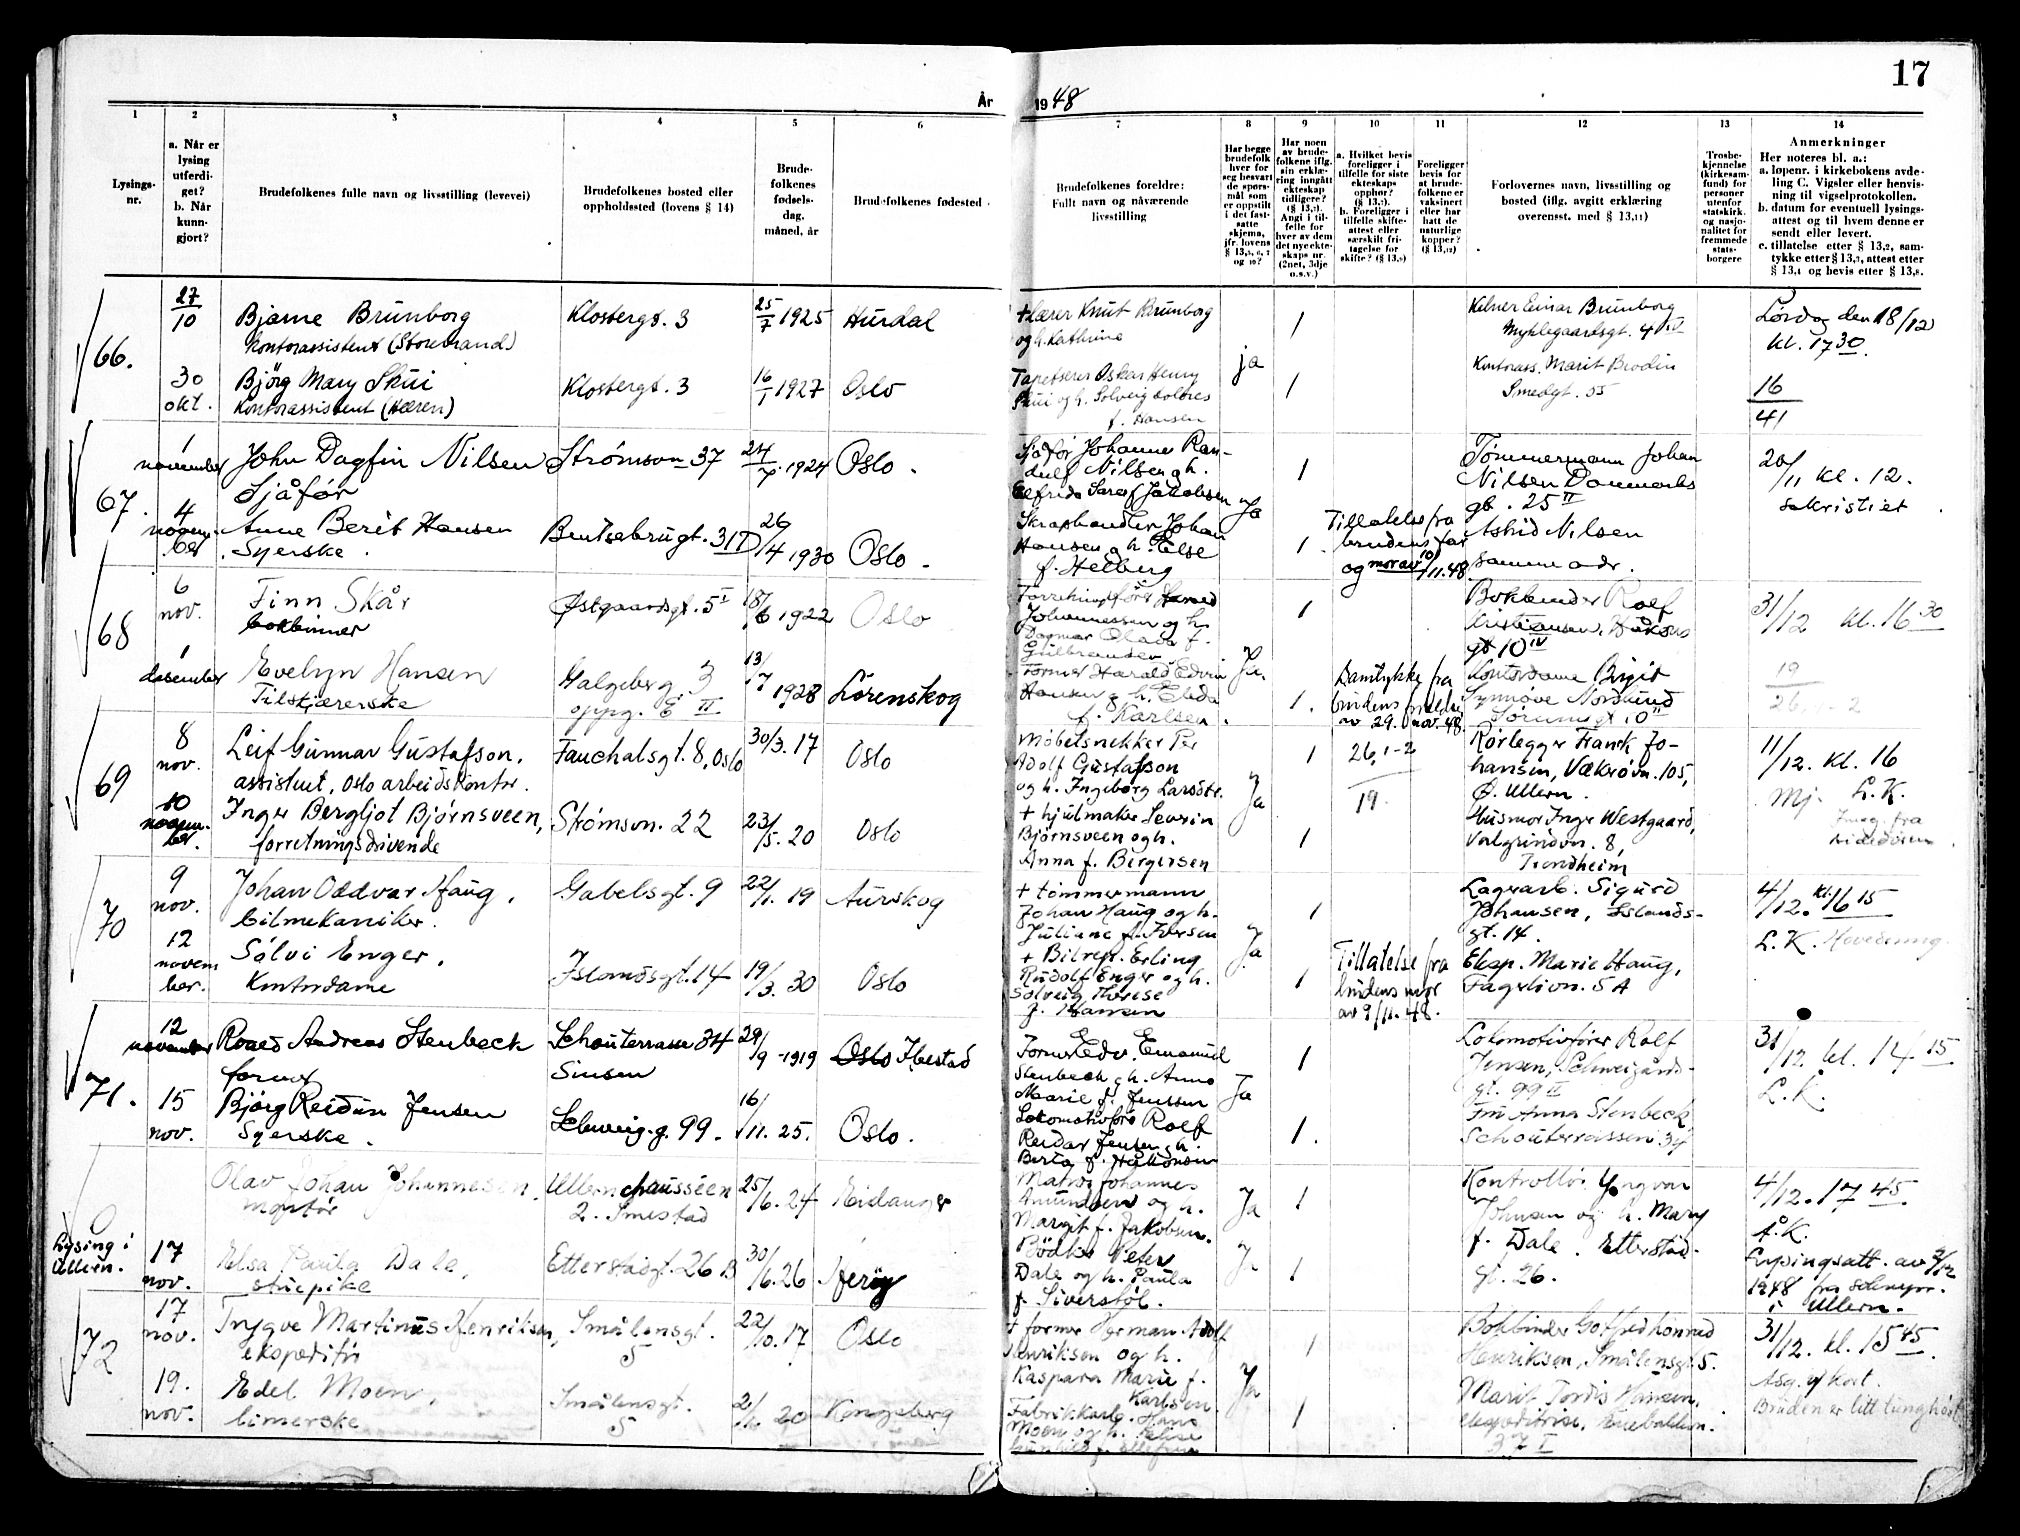 17
År 1948
1 2 3 4 5 6 7 8 9 10 11 12 13 14
Lysings-
nr.
a. Når er
lysing
utferdi-
get?
b. Når
kunn-
gjort?
Brudefolkenes fulle navn og livsstilling (levevei)
Brudefolkenes bosted eller
oppholdssted (lovens § 14)
Brude-
folkenes
fødsels-
dag,
måned, år
Brudefolkenes fødested
Brudefolkenes foreldre:
Fullt navn og nåværende
livsstilling
Har begge
brudefolk
hver for
seg besvart
de spørs-
mål som
er oppstilt
i det fast-
satte
skjema,
jfr. lovens
og 10?
Har noen
av brude-
folkene iflg.
sin erklæ-
ring inngått
ekteskap
tidligere?
Angi i til-
felle for
hver av dem
det nye ekte-
skaps nr.
(2net, 3dje
o.s.v.)
a. Hvilket bevis
foreligger i
tilfelle for siste
ekteskaps
opphør?
b. Foreligger i
tilfelle skifte-
attest eller
særskilt fri-
tagelse for
skifte?
Foreligger
bevis for
at brude-
folkene er
vaksinert
eller har
hatt de
naturlige
kopper?
Forlovernes navn, livsstilling og
bosted (iflg. avgitt erklæring
overensst. med § 13,11)
Trosbe-
kjennelse
(kirkesam-
fund) for
personer
utenfor
statskirk.
og nasjo-
nalitet for
fremmede
stats-
borgere
Anmerkninger
Her noteres bl. a.:
a. løpenr. i kirkebokens avde-
ling C. Vigsler eller henvis-
ning til vigselprotokollen.
b. datum for eventuell lysings-
attest og til hvem denne er
sendt eller levert.
c. tillatelse etter § 13,2, sam-
tykke etter § 13,3, attest etter
§ 13,4 og bevis etter § 13,8.
66.
27/10
30 okt.
Bjarne Brunborg
Kontorassistent (Storebrand)
Klostergt. 3
25/7 1925
Hurdal
+ Lærer Knut Brunborg
og h. Kathrine
ja
1
Kelner Einar Brunborg
Myklegaardsgt. 4 IV
Lørdag den 18/12
kl. 17 30
Bjørg Mary Skui
Kontorassistent (Hæren)
Klostergt. 3
16/1 1927
Oslo
Tapetserer Oskar Henry
Skui og h. Solveig Dolores
f. Hansen
1
Kontorass. Marit Brodin
Smedgt. 55
16
41
67.
1 november
4 november
John Dagfin Nilsen
Sjåfør
Strømsvn 37
24/7 1924
Oslo.
Sjåfør Johannes Ran-
dulf Nilsen og h.
Ja
1
Tømmermann Johan
Nilsen Danmarks
gt. 25 II
20/11 kl. 12.
Sakristiet
Anne Berit Hansen
Syerske.
Bentsebrugt. 31 I
26/4 1930
Oslo.
Skraphandler Johan
Hansen og h. Else
f. Helberg
1.
Tillatelse fra
brudens far
og mor av 10/11.48
Astrid Nilsen
samme adr.
68
6 nov.
1 desember
Finn Skår
bokbinner
Østgaardsgt. 5 I
18/6 1922
Oslo
Johannessen og h.
Dagmar
Gulbrandsen
Ja.
1
Bokbinder Rolf
Kristiansen, Håkons
gt 10 IV
31/12 kl. 16 30
Evelyn Hansen
Tilskjærerske
Galgeberg 3
oppg. E II
13/7 1928
Lørenskog
Former Harald Edvin
Hansen og h.
f. Karlsen.
1.
Samtykke fra
brudens
av 29. nov. 48.
Kontordame Birgit
Synnøve Nordlund
19
69
8 nov.
10 november.
Leif Gunnar Gustafson,
assistent, Oslo arbeidskontor.
Fauchalsgt. 8, Oslo
30/3. 17
Oslo
Møbelsnekker Per
Adolf Gustafson
og h. Ingeborg Larsdtr.
Ja
1
26, 1-2
19.
Rørlegger Frank Jo-
hansen, Vækerøvn. 105,
Ø. Ullern.
11/12. kl. 16
Mj. L.K.
Inger Bergljot Bjørnsveen,
forretningsdrivende
Strømsvn. 22
23/5. 20
Oslo
+ hjulmaker Severin
Bjørnsveen og h.
Anna f. Bergersen
1
Husmor Inger Westgaard,
Valgrindvn. 8,
Trondheim
70
9 nov.
12 november.
Johan Oddvar Haug,
bilmekaniker.
Gabelsgt. 9
22/1. 19
Aurskog
+ tømmermann
Johan Haug og h.
Juliane f. Iversen
Ja
1
Lagerarb. Sigurd
Johansen, Islands-
gt. 14.
4/12. kl. 16 15
L.K.
Sølvi Enger.
Kontordame
Islandsgt. 14
19/3. 30
Oslo
+ Bilrep. Erling
Rudolf Enger og h.
Solveig Therese
f. Hansen
1
Tillatelse fra
brudens mor
av 9/11. 48.
Eksp. Marie Haug,
Fagerlivn. 5A
71.
12 november
15 nov.
Roald Andreas Stenbeck
former
Schouterrassen 34
Sinsen
29/9 -1919
Oslo Ibestad
Former Edv. Emanuel
Stenbeck og h. Anna
Marie f. Jenssen
Ja
1
Lokomotivfører Rolf
Jensen, Schweigårds-
gt. 99 II
31/12 kl. 14 15
L.K.
Bjørg Reidun Jensen
Syerske.
Schweig.g. 99.
16/11. 25.
Oslo.
Lokomotivfører Rolf
Reidar Jensen og h.
Berta f. Håkonsen
1.
Fru Anna Stenbeck
Schouterrassen 34
Lysing i
Ullern.
17 nov.
Olav Johan Johannesen,
montør
Ullernchausséen
2. Smestad
25/6. 24
Eidanger
Johannes
Amundsen og h.
Margit f. Jakobsen.
Ja
1
Kontrollør Yngvar
Johnsen og h. Mary
f. Dale. Etterstad-
gt. 26.
4/12. 17 45.
Å.K.
Elsa Paula Dale,
stuepike
Etterstadgt. 26 B
30/6. 26
Bødker Peter
Dale og h. Paula
f. Siverstøl.
Ja
1
Lysingsatt. av
1948 fra
i Ullern.
72
17 nov.
19. nov.
Trygve Martinus Henriksen,
ekspeditør
Smålensgt.
5
22/10. 17
Oslo
+ former Herman Adolf
Henriksen og h.
Kaspara Marie f.
Karlsen
Ja
1
Bokbinder Gotfred Konrad
Henriksen, Smålensgt. 5.
31/12. kl. 15 45.
Edel Moen,
limerske
Smålensgt.
5
20
Kongsberg
Fabrikkarb. Hans
Moen og h.
1
Marit Tordis Hansen,
ekspeditrise,
Bruden er litt tunghørt